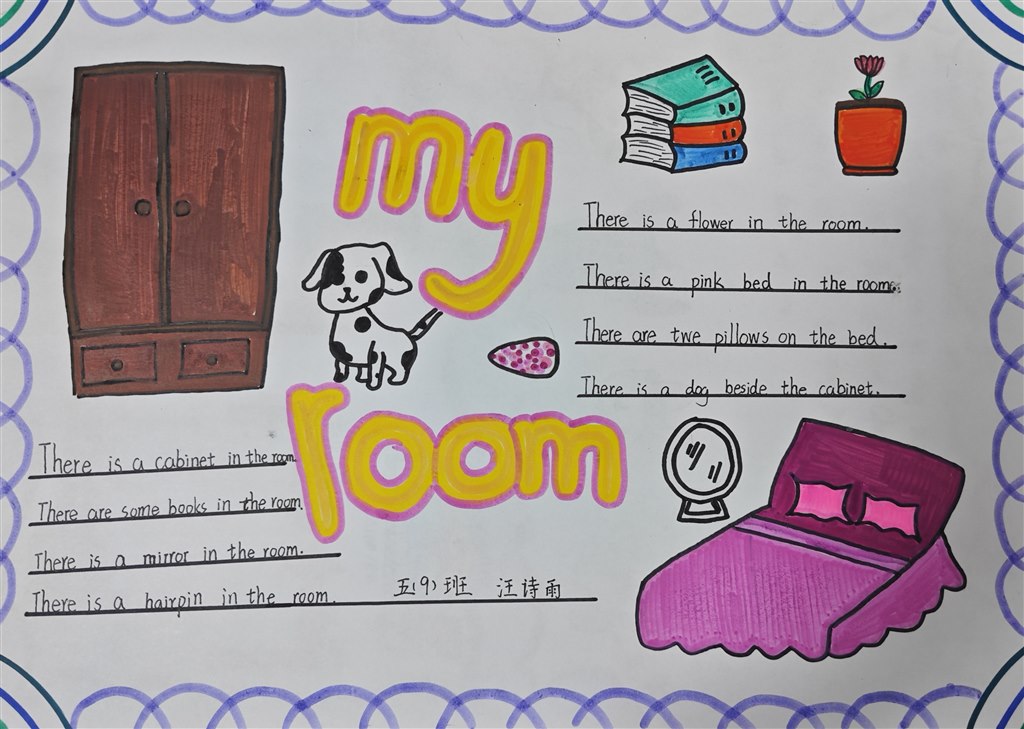 my
room
There is a flower in the room.
There is a pink bed in the room.
There are twe pillows on the bed.
There is a dog beside the cabinet.
There is a cabinet in the room.
There are some books in the room.
There is a mirror in the room.
There is a hairpin in the room.
五(9)班 汪诗雨